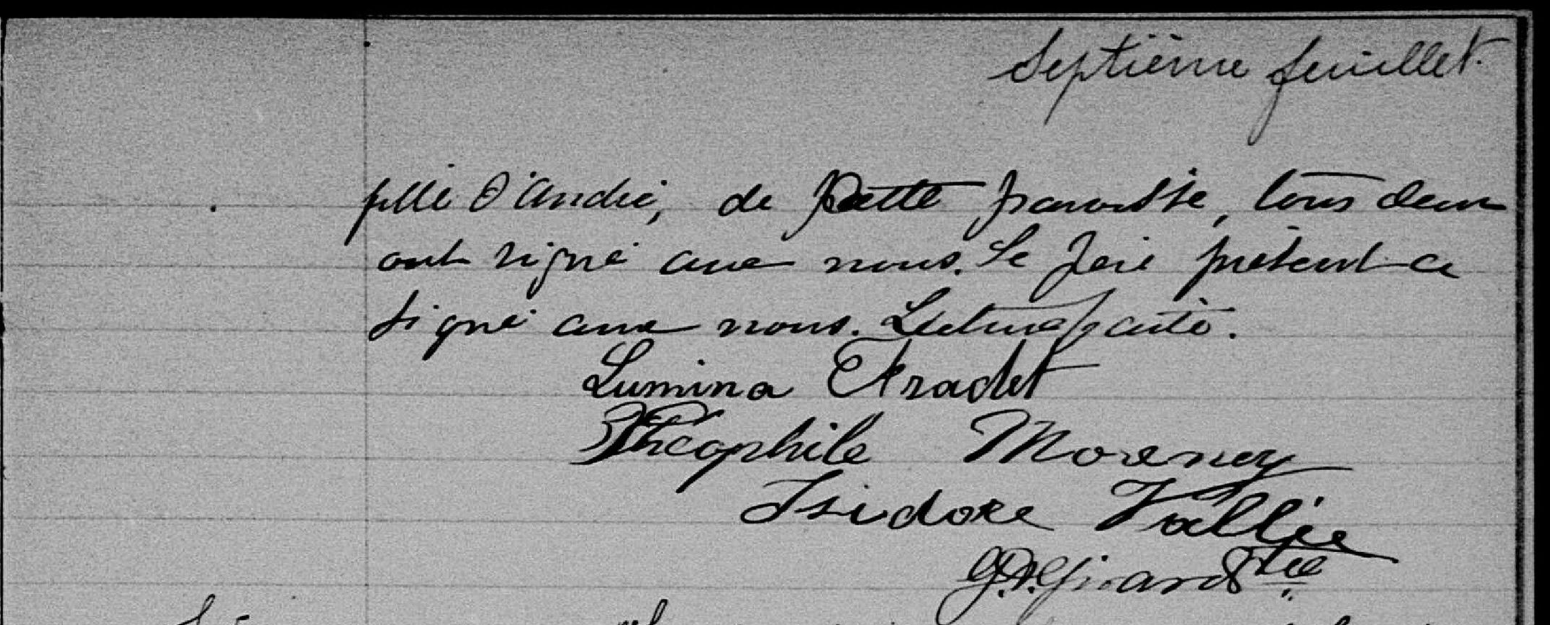 Septième feuillet.
fille d'André, de cette paroisse, tous deux
ont signé avec nous. Le père présent a
signé avec nous. Lecture faite.
Lumina Fradet
Théophile Morency
Isidore Vallée
Girard Ptre